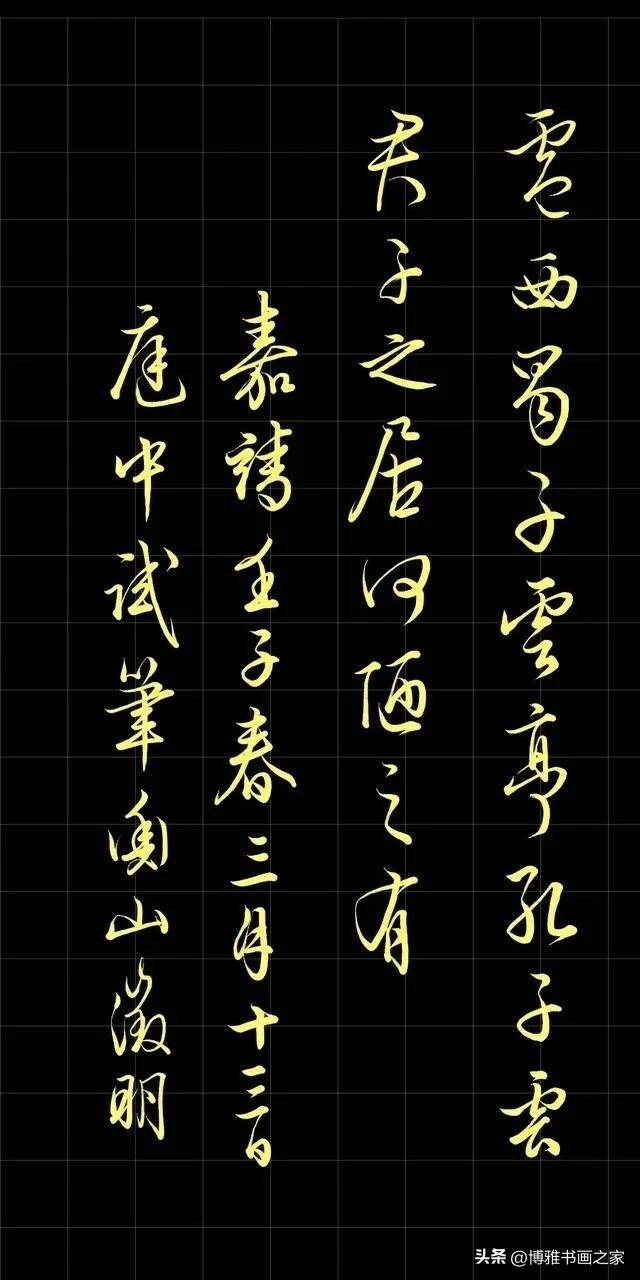 廬西蜀子雲亭孔子雲
君子之居何陋之有
嘉靖壬子春三月十三日
庭中試筆衡山徵明
头条 @博雅书画之家